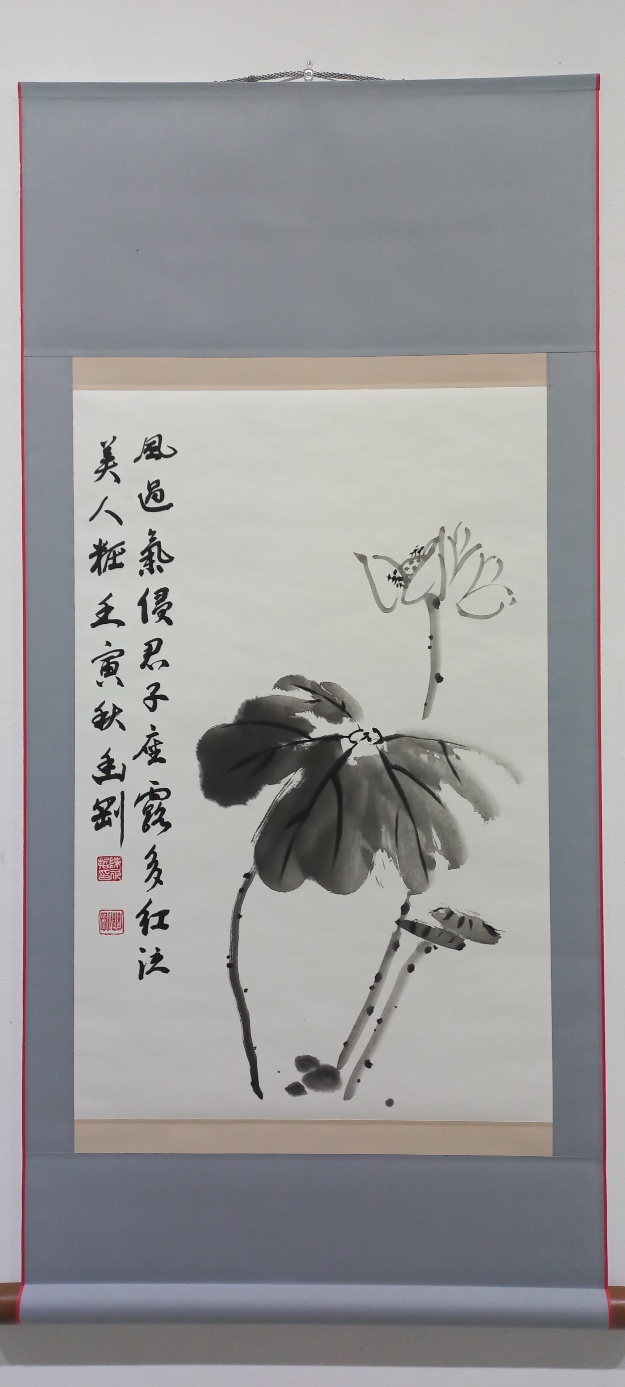 風過氣侵君子座露多紅泫
美人粧壬寅秋幽剛